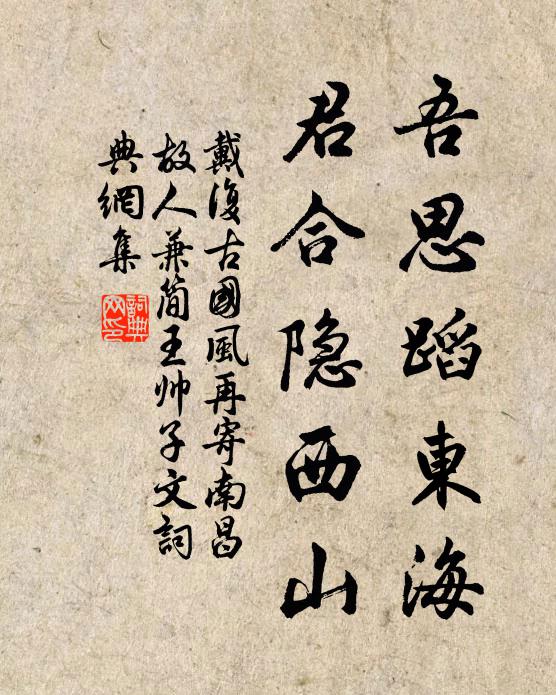 吾思蹈東海
君合隐西山
戴復古國風再寄南昌
故人兼简王帅子文詞
典網集
詞典
网印